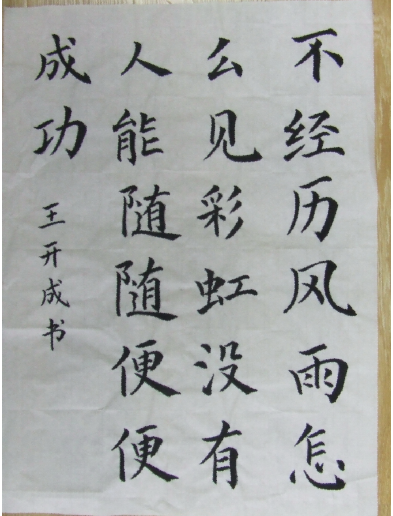 不经历风雨怎
么见彩虹没有
人能随随便便
成功
王开成书